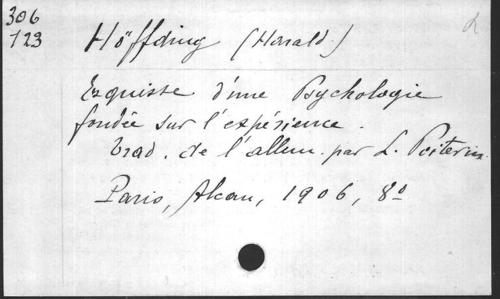 306
123
Höffding (Harald)
Esquisse d'une Psychologie
fondée sur l'expérience.
Trad. de l'allem. par L. Poitevin.
Paris, Alcan, 1906, 8º